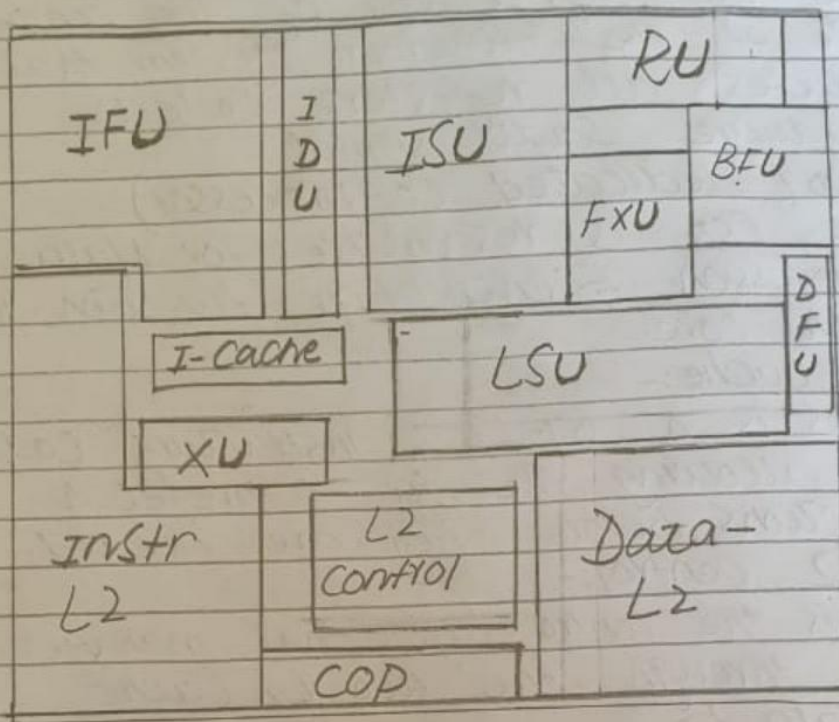 RU
IFU
I
D
U
ISU
BFU
FXU
D
F
U
I-Cache
LSU
XU
Instr
L2
L2
Control
Data-
L2
COP